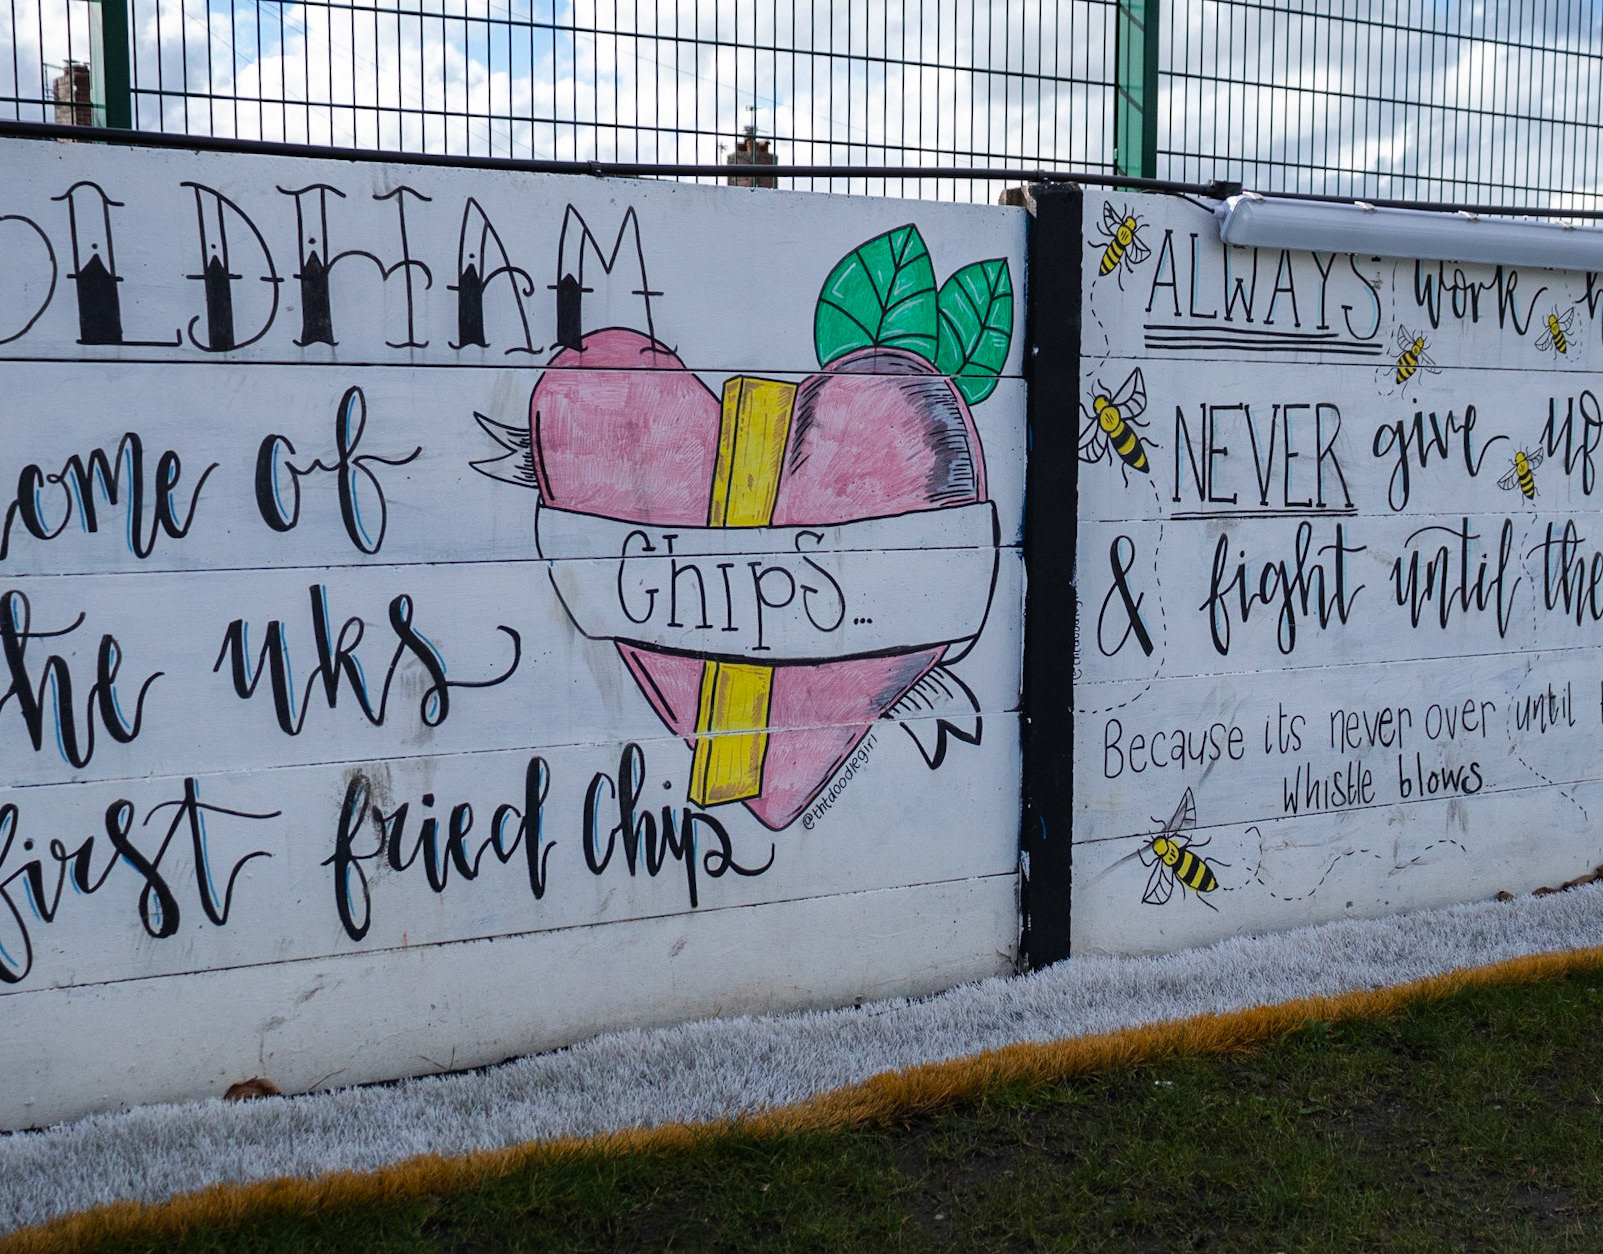 OLDHAM
ome of
the uks
first fried Chips
Chips...
@thtdoodlegirl
ALWAYS work
NEVER give up
& fight until the
Because its never over until
Whistle blows...